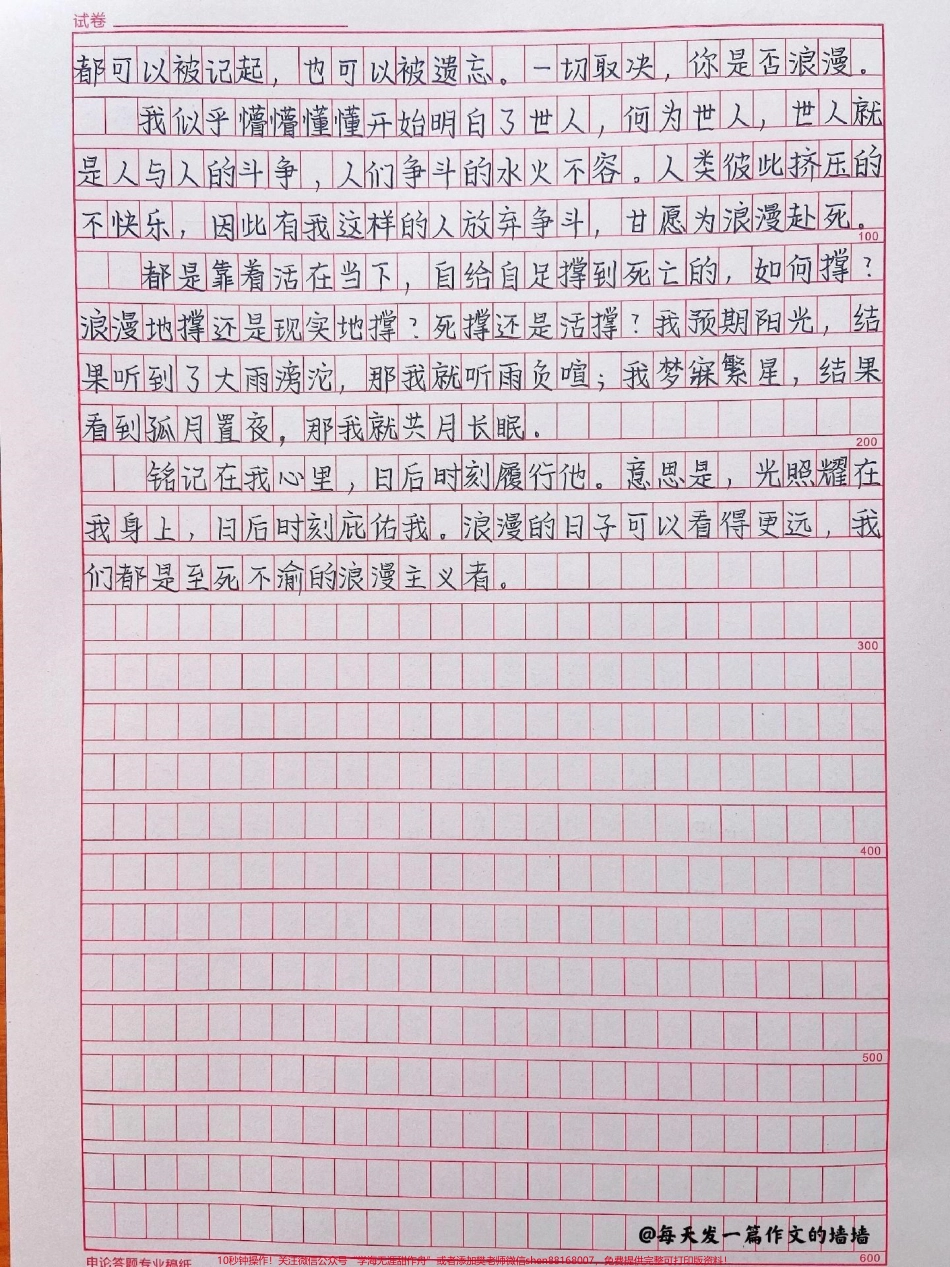 试卷
都可以被记起，也可以被遗忘。一切取决，你是否浪漫。
我似乎懵懵懂懂开始明白了世人，何为世人，世人就
是人与人的斗争，人们争斗的水火不容。人类彼此挤压的
不快乐，因此有我这样的人放弃争斗，甘愿为浪漫赴死。
100
都是靠着活在当下，自给自足撑到死亡的，如何撑？
浪漫地撑还是现实地撑？死撑还是活撑？我预期阳光，结
果听到了大雨滂沱，那我就听雨负喧；我梦寐繁星，结果
看到孤月置夜，那我就共月长眠。
200
铭记在我心里，日后时刻履行他。意思是，光照耀在
我身上，日后时刻庇佑我。浪漫的日子可以看得更远，我
们都是至死不渝的浪漫主义者。
300
400
500
@每天发一篇作文的墙墙
600
申论答题专业稿纸
10秒钟操作！关注微信公众号“学海无涯甜作舟”或者添加樊老师微信shen88168007，免费提供完整可打印版资料！